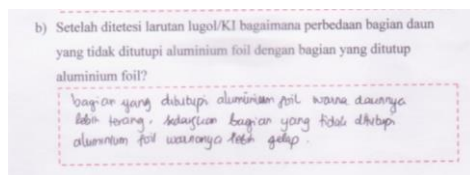 b) Setelah ditetesi larutan lugol/KI bagaimana perbedaan bagian daun
yang tidak ditutupi aluminium foil dengan bagian yang ditutup
aluminium foil?
bagian yang ditutupi aluminium foil warna daunnya
lebih terang, sedangkan bagian yang tidak ditutupi
aluminium foil warnanya lebih gelap.